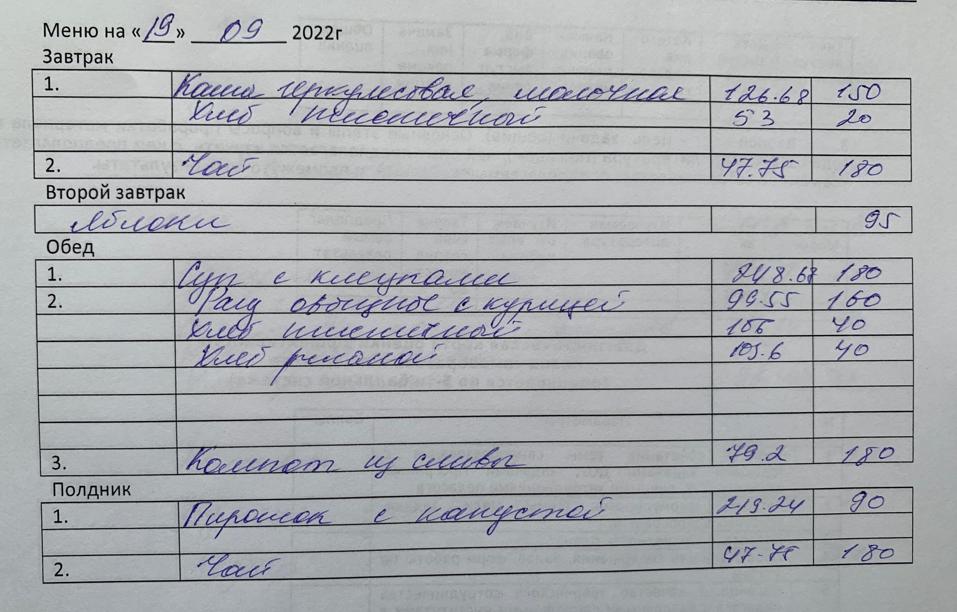 Меню на «19» 09 2022г
Завтрак
1. Каша геркулесовая, молочная 126.68 150
Хлеб пшеничный 53 20
2. Чай 47.75 180
Второй завтрак
Яблоки 95
Обед
1. Суп с клецками 248.67 180
2. Рагу овощное с курицей 99.55 160
Хлеб пшеничный 106 40
Хлеб ржаной 105.6 40
3. Компот из сливы 79.2 180
Полдник
1. Пирожок с капустой 219.24 90
2. Чай 47.75 180